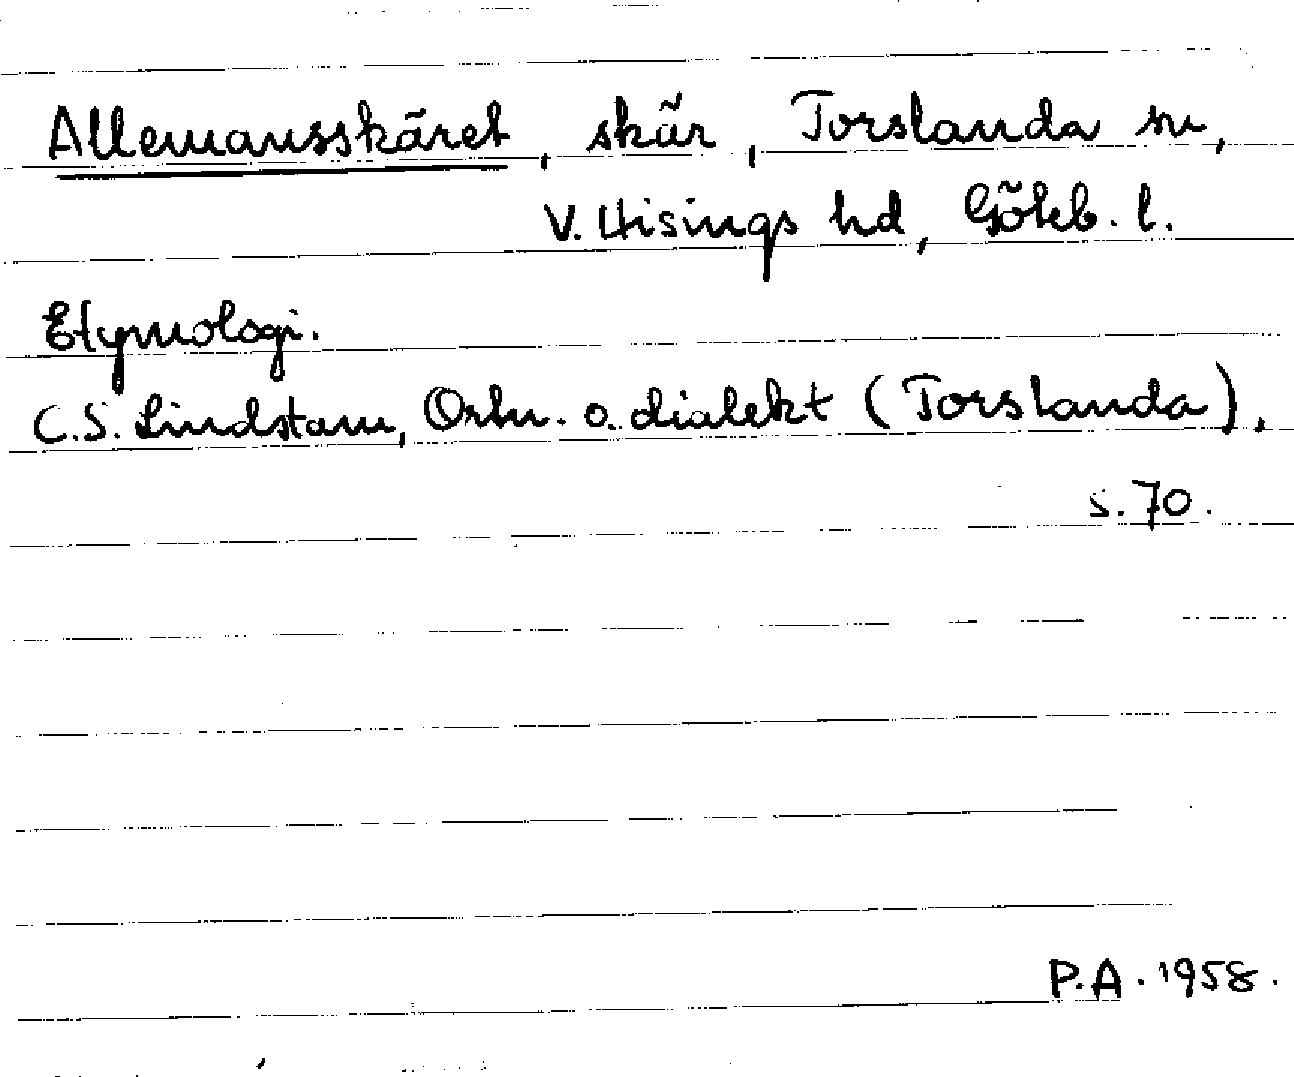 Allemansskäret, skär, Torslanda sn,
V. Hisings hd, Göteb. l.
Etymologi.
C.S. Lindstam, Ortn. o. dialekt (Torslanda),
s. 70.
P.A. 1958.